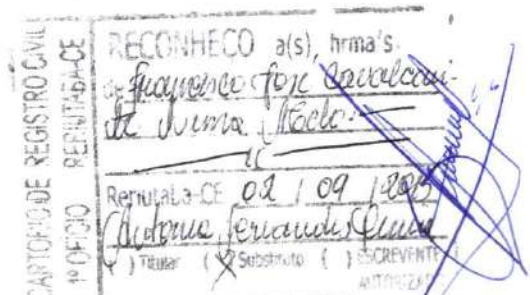 CARTORIO DE REGISTRO CIVIL
1º OFICIO RERIUTABA-CE
RECONHECO a(s), firma's
de Francisco José Cavalcanti
de Lima Melo
Reriutaba-CE 02 / 09 /
Antonia Fernandes
( ) Titular (X) Substituto ( ) ESCREVENTE
AUTORIZADO